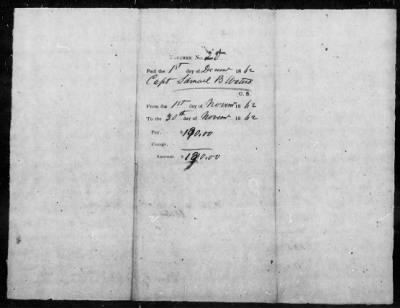 Voucher No.
Paid the 1st day of Decemr 1862
Capt Samuel B Waters
C. S.
From the 1st day of Novemr 1862
To the 30th day of Novemr 1862
Pay, $190.00
Forage,
Amount, $190.00